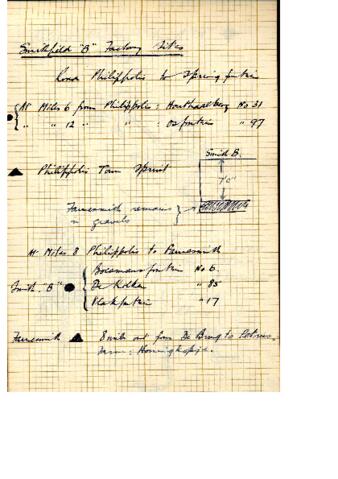 Smithfield "B" Factory Sites
Road Philippolis to Springfontein
At Miles 6 from Philippolis: No 31
" " 12 " " : Osfontein " 97
Smith B.
Philippolis Town Spruit
7'0"
Fauresmith remains
in gravels
At Miles 8 Philippolis to Fauresmith
Boesmansfontein No 6.
Smith. "B" De Kolka " 85
Vlakfontein " 17
Fauresmith 8 miles out from De Brug to
Farm: Honingkopje.